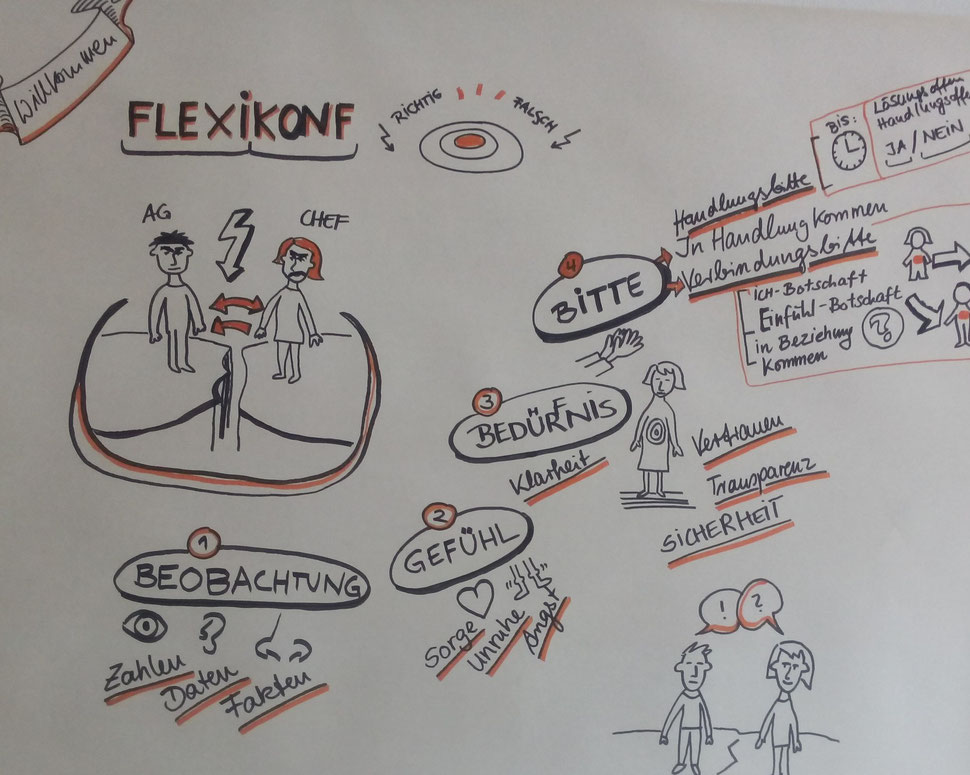 Willkommen
FLEXIKONF
RICHTIG
FALSCH
AG
CHEF
BIS:
Lösungsoffen
Handlungsoffen
JA / NEIN
Handlungsbitte
In Handlung kommen
Verbindungsbitte
ICH-Botschaft
Einfühl-Botschaft
in Beziehung
kommen
?
4
BITTE
3
BEDÜRFNIS
Klarheit
Vertrauen
Transparenz
SICHERHEIT
2
GEFÜHL
Sorge
Unruhe
Angst
1
BEOBACHTUNG
Zahlen
Daten
Fakten
! ?